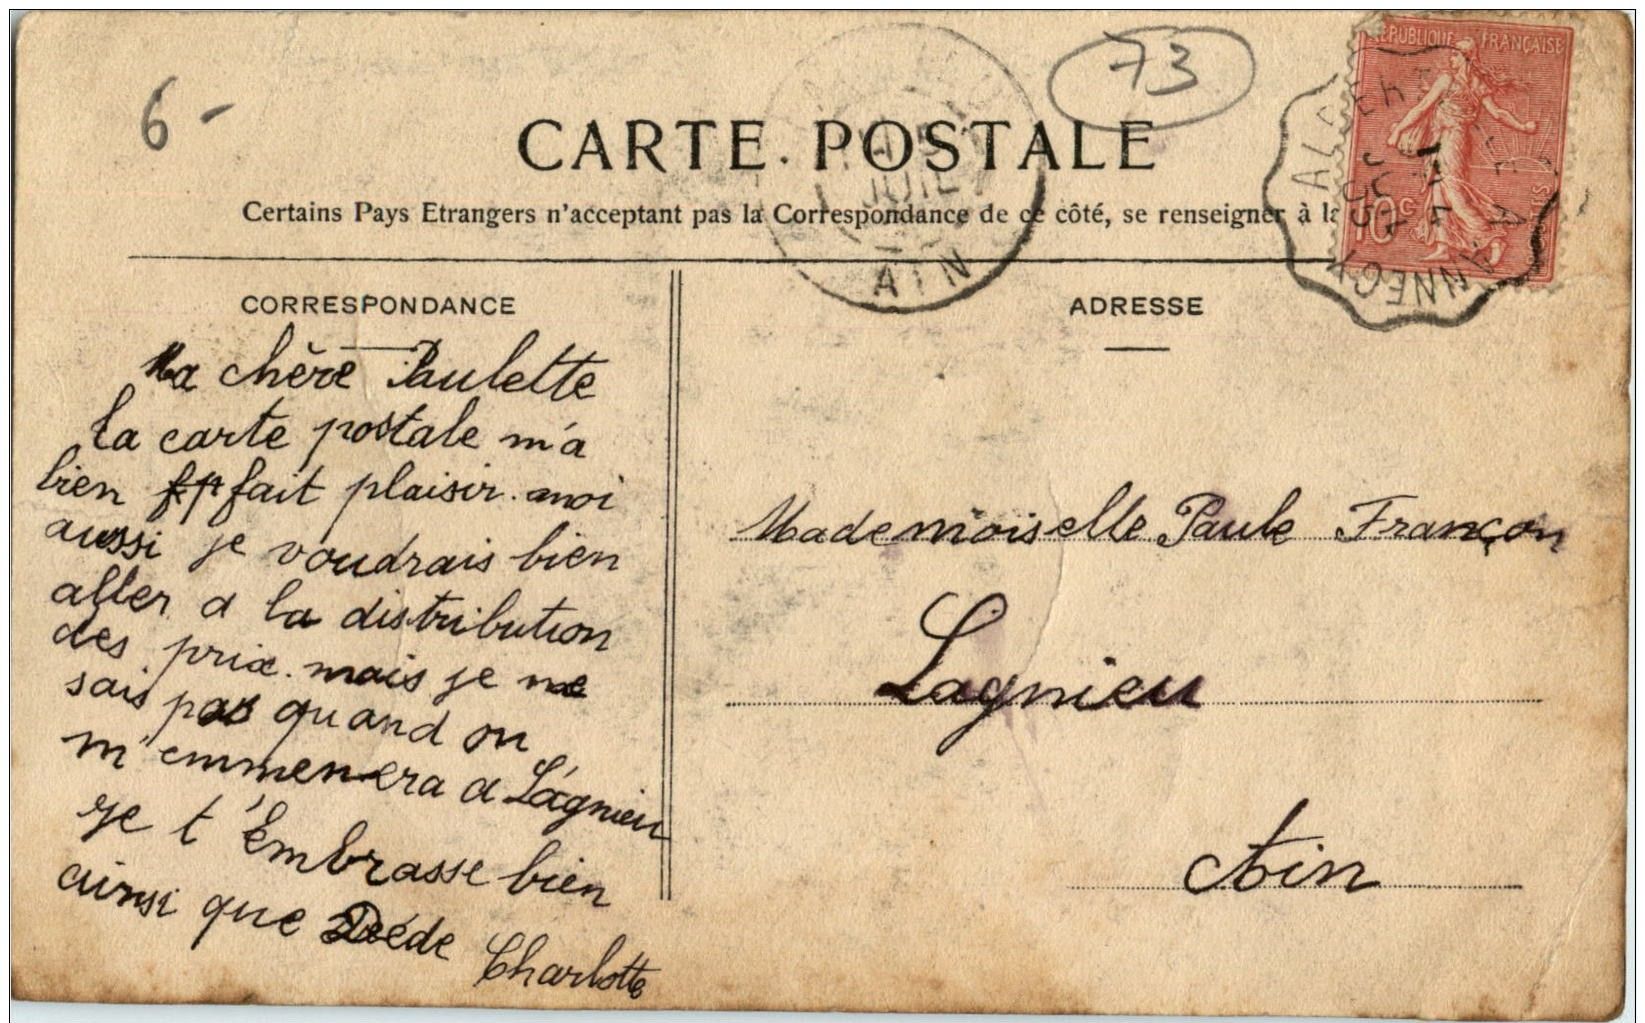 6-
73
CARTE POSTALE
Certains Pays Etrangers n'acceptant pas la Correspondance de ce côté, se renseigner à la
REPUBLIQUE FRANÇAISE
10c
JUIL
AIN
ANNECY
CORRESPONDANCE
Ma chère Paulette
la carte postale m'a
bien fait plaisir. moi
aussi je voudrais bien
aller a la distribution
des prix. mais je ne
sais pas quand on
m'emmenera a Lágnieu
je t'embrasse bien
ainsi que Dédé
Charlotte
ADRESSE
Mademoiselle Paule Françon
Lagnieu
Ain